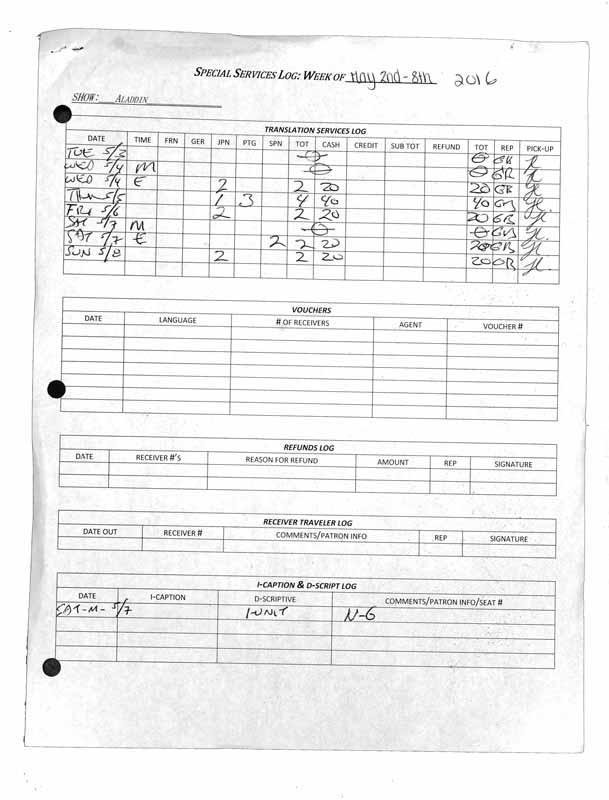 SPECIAL SERVICES LOG: WEEK OF May 2nd-8th 2016
SHOW: ALADDIN
TRANSLATION SERVICES LOG
DATE TIME FRN GER JPN PTG SPN TOT CASH CREDIT SUB TOT REFUND TOT REP PICK-UP
TUE 5/3 0 0 GB
WED 5/4 M 0 0 GB
WED 5/4 E 2 2 20 20 GB
THU 5/5 1 3 4 40 40 GB
FRI 5/6 2 2 20 20 GB
SAT 5/7 M 0 0 GB
SAT 5/7 E 2 2 20 20 GB
SUN 5/8 2 2 20 20 GB
VOUCHERS
DATE LANGUAGE # OF RECEIVERS AGENT VOUCHER #
REFUNDS LOG
DATE RECEIVER #'S REASON FOR REFUND AMOUNT REP SIGNATURE
RECEIVER TRAVELER LOG
DATE OUT RECEIVER # COMMENTS/PATRON INFO REP SIGNATURE
I-CAPTION & D-SCRIPT LOG
DATE I-CAPTION D-SCRIPTIVE COMMENTS/PATRON INFO/SEAT #
SAT-M- 5/7 1-UNIT N-6